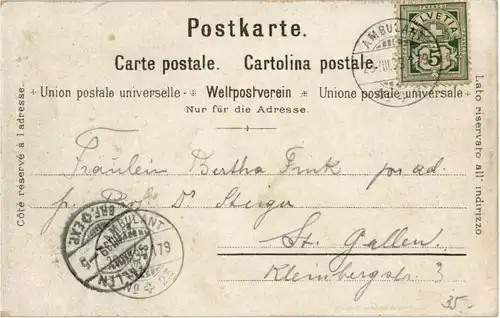 Postkarte.
Carte postale. Cartolina postale.
Union postale universelle - Weltpostverein Unione postale universale
Nur für die Adresse.
Côté réservé à l'adresse.
Lato riservato all' indirizzo.
HELVETIA
5
AMBULANT
Fräulein Bertha Funk per ad.
Dr Steiger
St. Gallen
Kleinbergstr. 3
AMBULANT
179
No
ST. GALLEN
BRF. EXP.
35.-